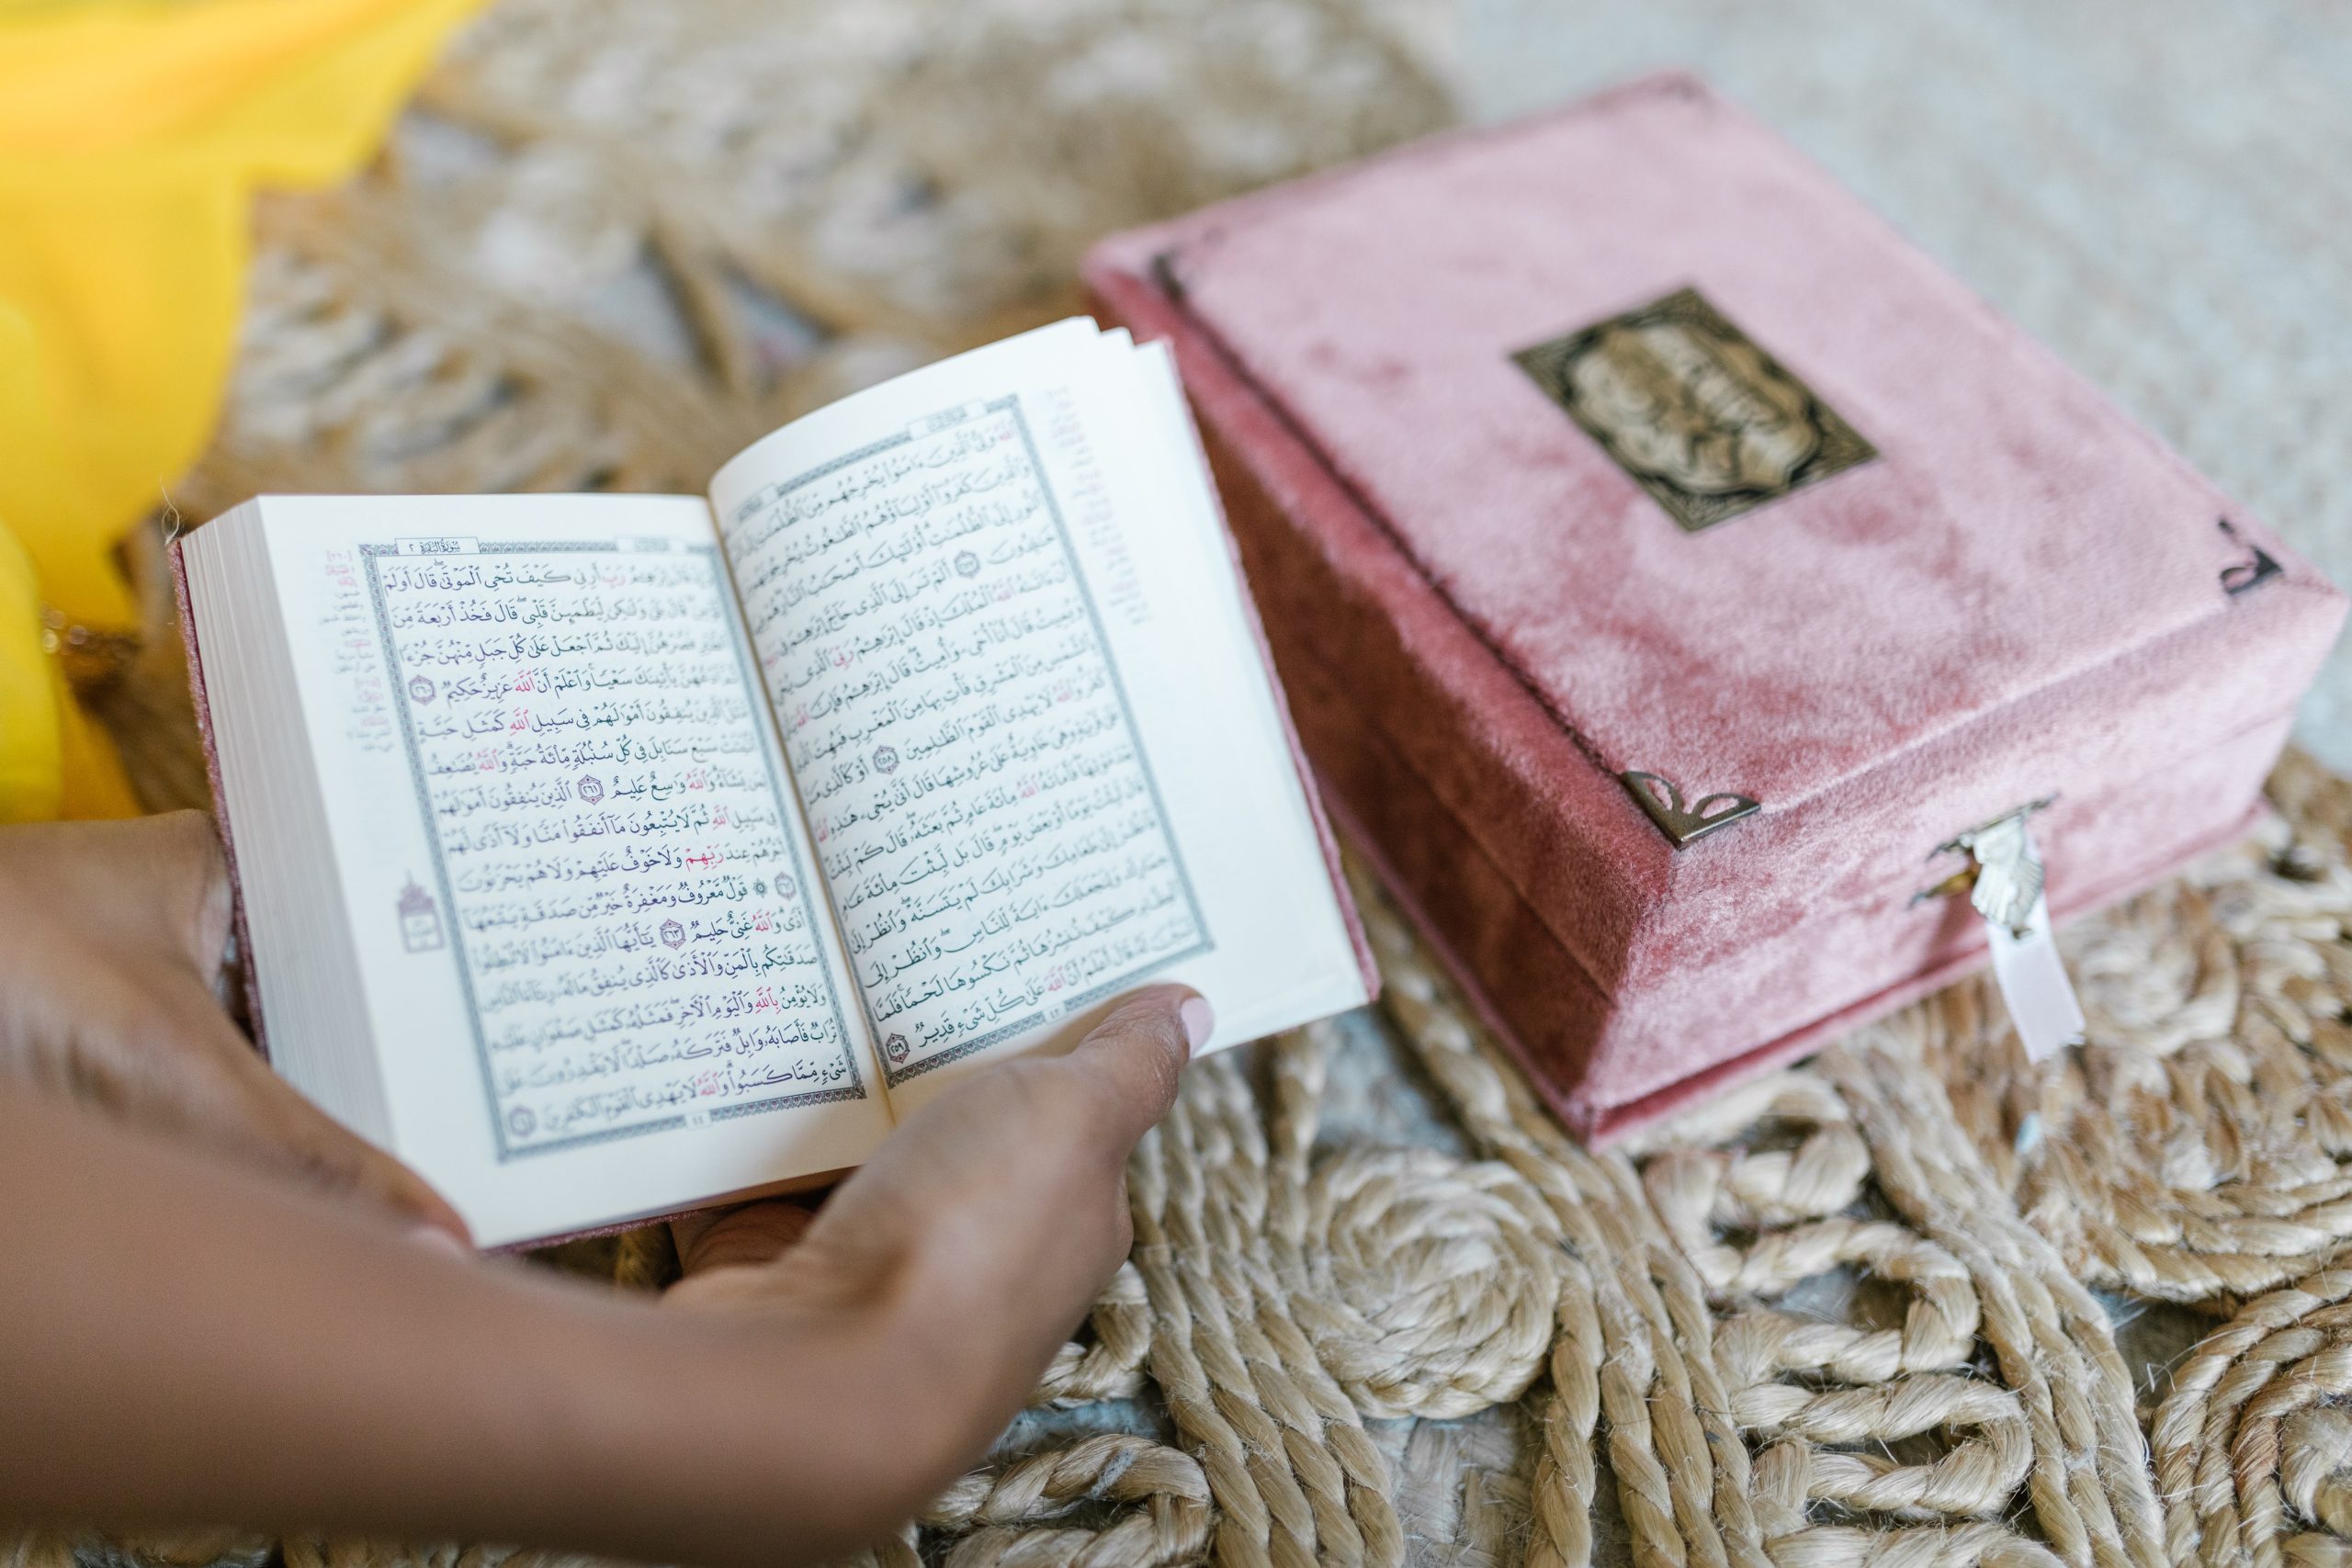 ٱللَّهُ وَلِيُّ ٱلَّذِينَ ءَامَنُوا۟ يُخْرِجُهُم مِّنَ ٱلظُّلُمَٰتِ إِلَى
وَٱلَّذِينَ كَفَرُوٓا۟ أَوْلِيَآؤُهُمُ ٱلطَّٰغُوتُ يُخْرِجُونَهُم
ٱلنُّورِ إِلَى ٱلظُّلُمَٰتِ أُو۟لَٰٓئِكَ أَصْحَٰبُ ٱلنَّارِ هُمْ فِيهَا
خَٰلِدُونَ ٢٥٧ أَلَمْ تَرَ إِلَى ٱلَّذِى حَآجَّ إِبْرَٰهِۦمَ فِى رَبِّهِۦٓ
أَنْ ءَاتَىٰهُ ٱللَّهُ ٱلْمُلْكَ إِذْ قَالَ إِبْرَٰهِۦمُ رَبِّىَ ٱلَّذِى يُحْىِۦ
وَيُمِيتُ قَالَ أَنَا۠ أُحْىِۦ وَأُمِيتُ قَالَ إِبْرَٰهِۦمُ فَإِنَّ ٱللَّهَ
ٱلشَّمْسِ مِنَ ٱلْمَشْرِقِ فَأْتِ بِهَا مِنَ ٱلْمَغْرِبِ فَبُهِتَ ٱلَّذِى
كَفَرَ وَٱللَّهُ لَا يَهْدِى ٱلْقَوْمَ ٱلظَّٰلِمِينَ ٢٥٨ أَوْ كَٱلَّذِى مَرَّ
عَلَىٰ قَرْيَةٍ وَهِىَ خَاوِيَةٌ عَلَىٰ عُرُوشِهَا قَالَ أَنَّىٰ يُحْىِۦ هَٰذِهِ ٱللَّهُ
بَعْدَ مَوْتِهَا فَأَمَاتَهُ ٱللَّهُ مِا۟ئَةَ عَامٍ ثُمَّ بَعَثَهُۥ قَالَ كَمْ لَبِثْتَ
قَالَ لَبِثْتُ يَوْمًا أَوْ بَعْضَ يَوْمٍ قَالَ بَل لَّبِثْتَ مِا۟ئَةَ عَامٍ
فَٱنظُرْ إِلَىٰ طَعَامِكَ وَشَرَابِكَ لَمْ يَتَسَنَّهْ وَٱنظُرْ إِلَىٰ
حِمَارِكَ وَلِنَجْعَلَكَ ءَايَةً لِّلنَّاسِ وَٱنظُرْ إِلَى
ٱلْعِظَامِ كَيْفَ نُنشِزُهَا ثُمَّ نَكْسُوهَا لَحْمًا فَلَمَّا
تَبَيَّنَ لَهُۥ قَالَ أَعْلَمُ أَنَّ ٱللَّهَ عَلَىٰ كُلِّ شَىْءٍ قَدِيرٌ ٢٥٩
٤٣
سُورَةُ البَقَرَةِ ٢
وَإِذْ قَالَ إِبْرَٰهِۦمُ رَبِّ أَرِنِى كَيْفَ تُحْىِ ٱلْمَوْتَىٰ قَالَ أَوَلَمْ
تُؤْمِن قَالَ بَلَىٰ وَلَٰكِن لِّيَطْمَئِنَّ قَلْبِى قَالَ فَخُذْ أَرْبَعَةً مِّنَ
ٱلطَّيْرِ فَصُرْهُنَّ إِلَيْكَ ثُمَّ ٱجْعَلْ عَلَىٰ كُلِّ جَبَلٍ مِّنْهُنَّ جُزْءًا
ثُمَّ ٱدْعُهُنَّ يَأْتِينَكَ سَعْيًا وَٱعْلَمْ أَنَّ ٱللَّهَ عَزِيزٌ حَكِيمٌ ٢٦٠
مَّثَلُ ٱلَّذِينَ يُنفِقُونَ أَمْوَٰلَهُمْ فِى سَبِيلِ ٱللَّهِ كَمَثَلِ حَبَّةٍ
أَنۢبَتَتْ سَبْعَ سَنَابِلَ فِى كُلِّ سُنۢبُلَةٍ مِّا۟ئَةُ حَبَّةٍ وَٱللَّهُ يُضَٰعِفُ
لِمَن يَشَآءُ وَٱللَّهُ وَٰسِعٌ عَلِيمٌ ٢٦١ ٱلَّذِينَ يُنفِقُونَ أَمْوَٰلَهُمْ
فِى سَبِيلِ ٱللَّهِ ثُمَّ لَا يُتْبِعُونَ مَآ أَنفَقُوا۟ مَنًّا وَلَآ أَذًى لَّهُمْ
أَجْرُهُمْ عِندَ رَبِّهِمْ وَلَا خَوْفٌ عَلَيْهِمْ وَلَا هُمْ يَحْزَنُونَ
٢٦٢ ۞ قَوْلٌ مَّعْرُوفٌ وَمَغْفِرَةٌ خَيْرٌ مِّن صَدَقَةٍ يَتْبَعُهَآ
أَذًى وَٱللَّهُ غَنِىٌّ حَلِيمٌ ٢٦٣ يَٰٓأَيُّهَا ٱلَّذِينَ ءَامَنُوا۟ لَا تُبْطِلُوا۟
صَدَقَٰتِكُم بِٱلْمَنِّ وَٱلْأَذَىٰ كَٱلَّذِى يُنفِقُ مَالَهُۥ رِئَآءَ ٱلنَّاسِ
وَلَا يُؤْمِنُ بِٱللَّهِ وَٱلْيَوْمِ ٱلْءَاخِرِ فَمَثَلُهُۥ كَمَثَلِ صَفْوَانٍ عَلَيْهِ
تُرَابٌ فَأَصَابَهُۥ وَابِلٌ فَتَرَكَهُۥ صَلْدًا لَّا يَقْدِرُونَ عَلَىٰ
شَىْءٍ مِّمَّا كَسَبُوا۟ وَٱللَّهُ لَا يَهْدِى ٱلْقَوْمَ ٱلْكَٰفِرِينَ ٢٦٤
٤٤